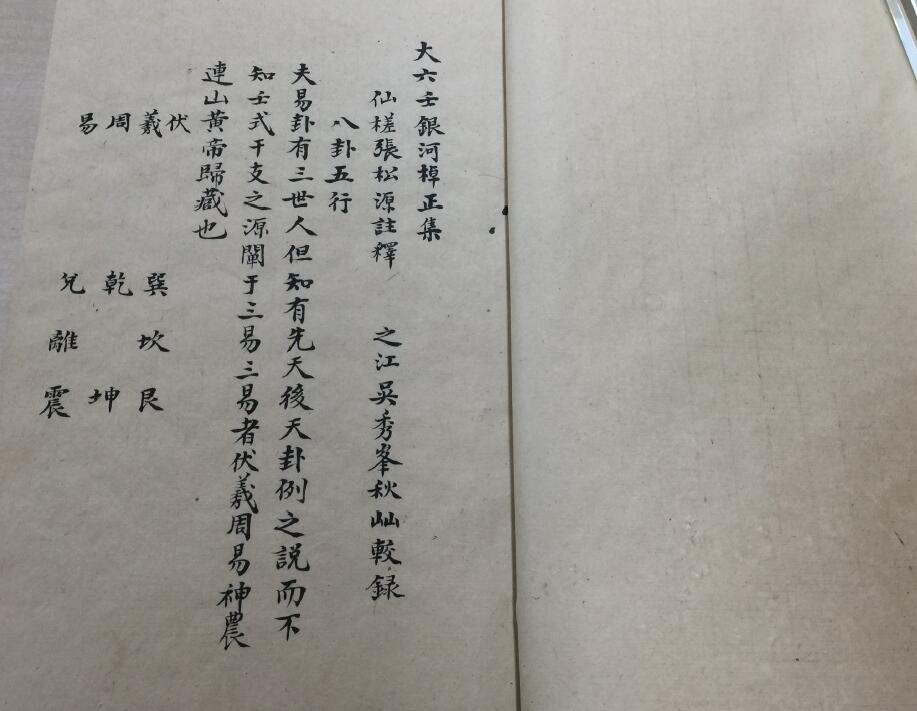 大六壬銀河棹正集
仙槎張松源註釋　之江吳秀峯秋屾較錄
八卦五行
夫易卦有三世人但知有先天後天卦例之説而不
知壬式干支之源闡于三易三易者伏羲周易神農
連山黄帝歸藏也
伏羲周易
巽乾兌
坎離
艮坤震